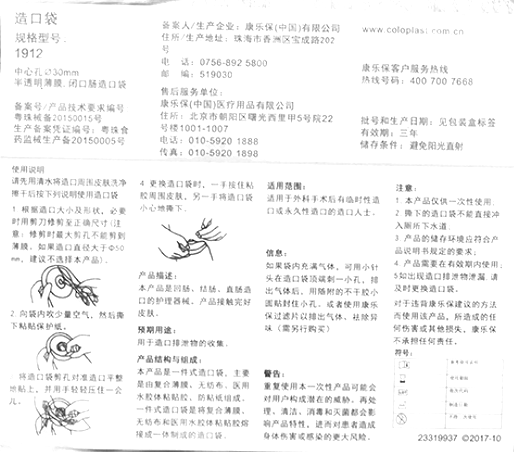 造口袋
规格型号.
1912
中心孔≥30mm
半透明薄膜.闭口肠造口袋
备案号/产品技术要求编号
粤珠械备20150015号
生产备案凭证编号：粤珠食
药监械生产备20150005号
备案人/生产企业：康乐保(中国)有限公司
住所/生产地址：珠海市香洲区宝成路202
号
电 话：0756-892 5800
邮 编：519030
售后服务单位：
康乐保(中国)医疗用品有限公司
住所：北京市朝阳区曙光西里甲5号院22
号楼1001-1007
电话：010-5920 1888
传真：010-5920 1898
www.coloplast.com.cn
康乐保客户服务热线
热线号码：400 700 7668
批号和生产日期：见包装盒标签
有效期：三年
储存条件：避免阳光直射
使用说明
请先用清水将造口周围皮肤洗净
擦干后按下列说明使用造口袋
1 根据造口大小及形状，必要
时用剪刀修剪至正确尺寸(注
意：修剪时最大剪孔不能剪到
薄膜。如果造口直径大于Φ50
mm，建议不选择本产品)。
2. 向袋内吹少量空气，然后撕
下粘贴保护纸。
将造口袋剪孔对准造口平整
地贴上，并用手轻轻压住一会
儿。
4 更换造口袋时，一手按住粘
胶周围皮肤，另一手将造口袋
小心地撕下。
产品描述：
本产品是回肠、结肠、直肠造
口的护理器械。产品接触完好
皮肤。
预期用途：
用于造口排泄物的收集。
产品结构与组成：
本产品是一件式造口袋，主要
是由复合薄膜、无纺布、医用
水胶体粘贴胶、防粘纸组成。
一件式造口袋是将复合薄膜、
无纺布和医用水胶体粘贴胶熔
接成一体制成的造口袋。
适用范围：
适用于外科手术后有临时性造
口或永久性造口的造口人士。
信息：
如果袋内充满气体，可用小针
头在造口袋顶端刺一小孔，排
出气体后，用随附的不干胶小
圆贴封住小孔。或者使用康乐
保过滤片以排出气体，祛除异
味（需另行购买）
警告：
重复使用本一次性产品可能会
对用户构成潜在的威胁。再处
理、清洁、消毒和灭菌都会影
响产品特性，进而对患者造成
身体伤害或感染的更大风险。
注意：
1. 本产品仅供一次性使用.
2. 撕下的造口袋不能直接冲
入厕所下水道.
3. 产品的储存环境应符合产
品说明书规定的要求；
4. 产品需要在有效期内使用；
5如出现造口排泄物泄漏.请
及时更换造口袋.
对于违背康乐保建议的方法
而使用该产品，所造成的任
何伤害或其他损失，康乐保
不承担任何责任.
符号：
23319937 ©2017-10